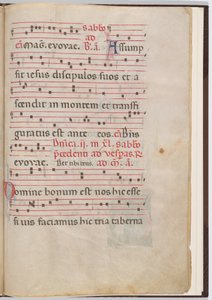 sabbo
ad
m̃as. evovae. B. ã. Assump
sit iesus discipulos suos et a
scendit in montem et transfi
guratus est ante eos.
Dñica. ii. in xl. sabbo
p̃cedenti ad vesp̃as. R.
evovae. ad m̃. ã.
Domine bonum est nos hic esse
si vis faciamus hic tria taberna